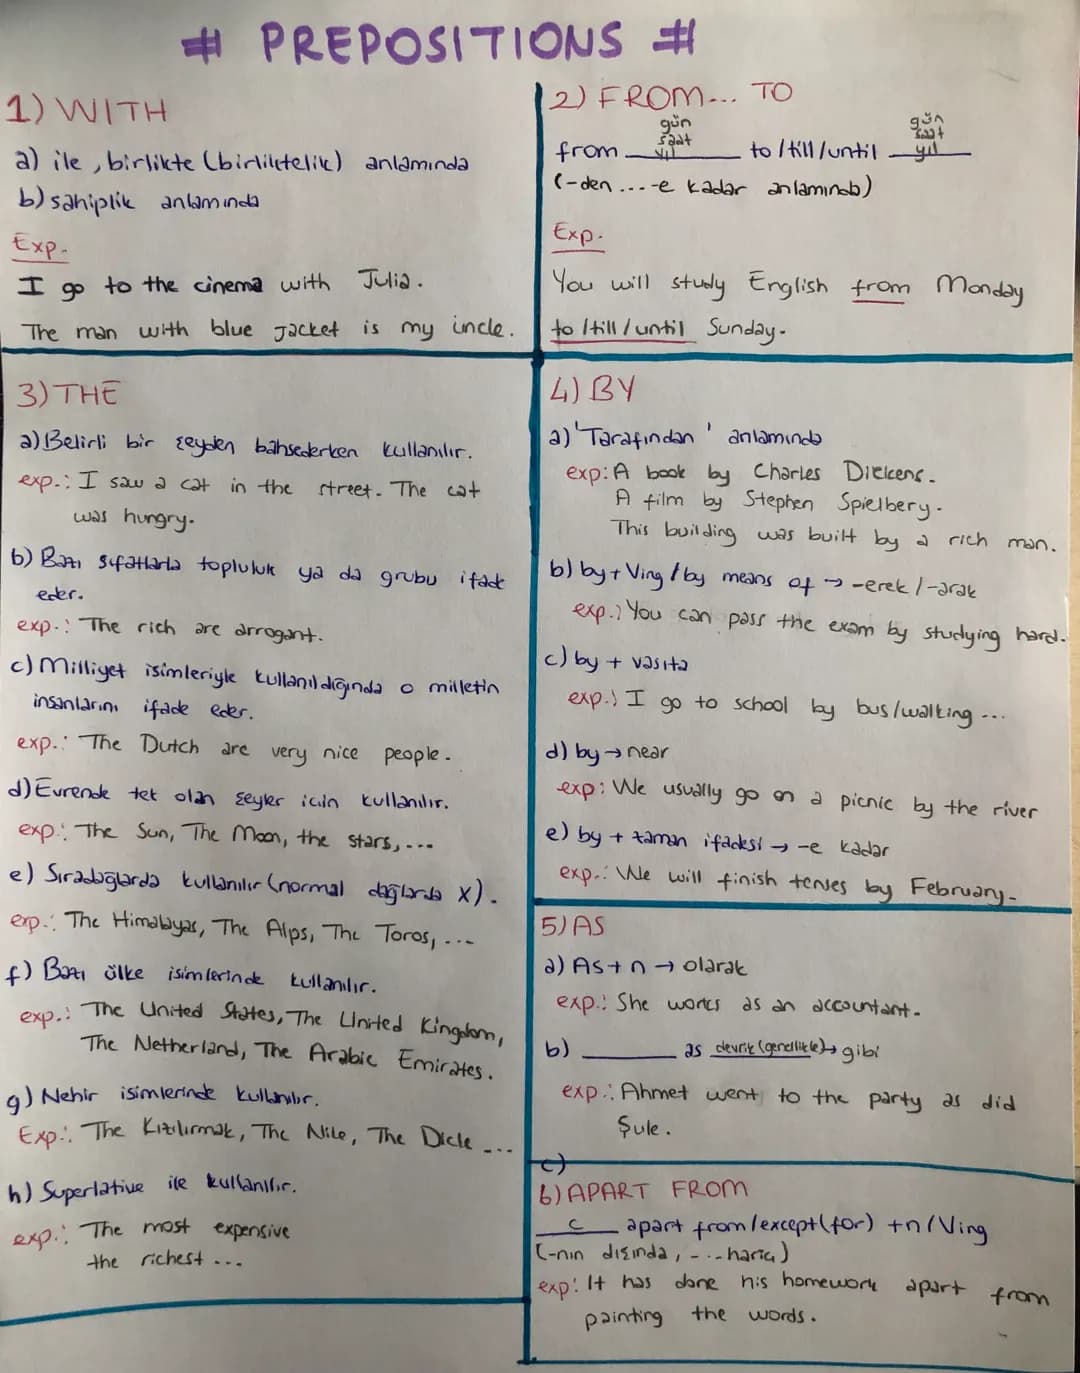 # PREPOSITIONS #
1) WITH
a) ile, birlikte (birliktelik) anlamında
b) sahiplik anlamında
Exp.
I go to the cinema with Julia.
The man with blue jacket is my uncle.
2) FROM... TO
gün
saat
yıl
gün
saat
yıl
from ______ to/till/until ______
(-den ... -e kadar anlamında)
Exp.
You will study English from Monday
to/till/until Sunday.
3) THE
a) Belirli bir şeyden bahsederken kullanılır.
exp.: I saw a cat in the street. The cat
was hungry.
b) Bazı sıfatlarla topluluk ya da grubu ifade
eder.
exp.: The rich are arrogant.
c) Milliyet isimleriyle kullanıldığında o milletin
insanlarını ifade eder.
exp.: The Dutch are very nice people.
d) Evrende tek olan şeyler için kullanılır.
exp.: The Sun, The Moon, the stars,...
e) Sıradağlarda kullanılır (normal dağlarda X).
exp.: The Himalayas, The Alps, The Toros, ...
f) Bazı ülke isimlerinde kullanılır.
exp.: The United States, The United Kingdom,
The Netherland, The Arabic Emirates.
g) Nehir isimlerinde kullanılır.
Exp.: The Kızılırmak, The Nile, The Dicle ...
h) Superlative ile kullanılır.
exp.: The most expensive
the richest ...
4) BY
a) 'Tarafından' anlamında
exp: A book by Charles Dickens.
A film by Stephen Spielberg.
This building was built by a rich man.
b) by + Ving / by means of → -erek / -arak
exp.: You can pass the exam by studying hard.
c) by + vasıta
exp.: I go to school by bus/walking ...
d) by → near
exp: We usually go on a picnic by the river
e) by + zaman ifadesi → -e kadar
exp.: We will finish tenses by February.
5) AS
a) As + n → olarak
exp.: She works as an accountant.
b) ______ as devrik (genellikle) → gibi
exp.: Ahmet went to the party as did
Şule.
c)
6) APART FROM
c apart from/except(for) + n / Ving
(-nın dışında, -... hariç)
exp: It has done his homework apart from
painting the words.